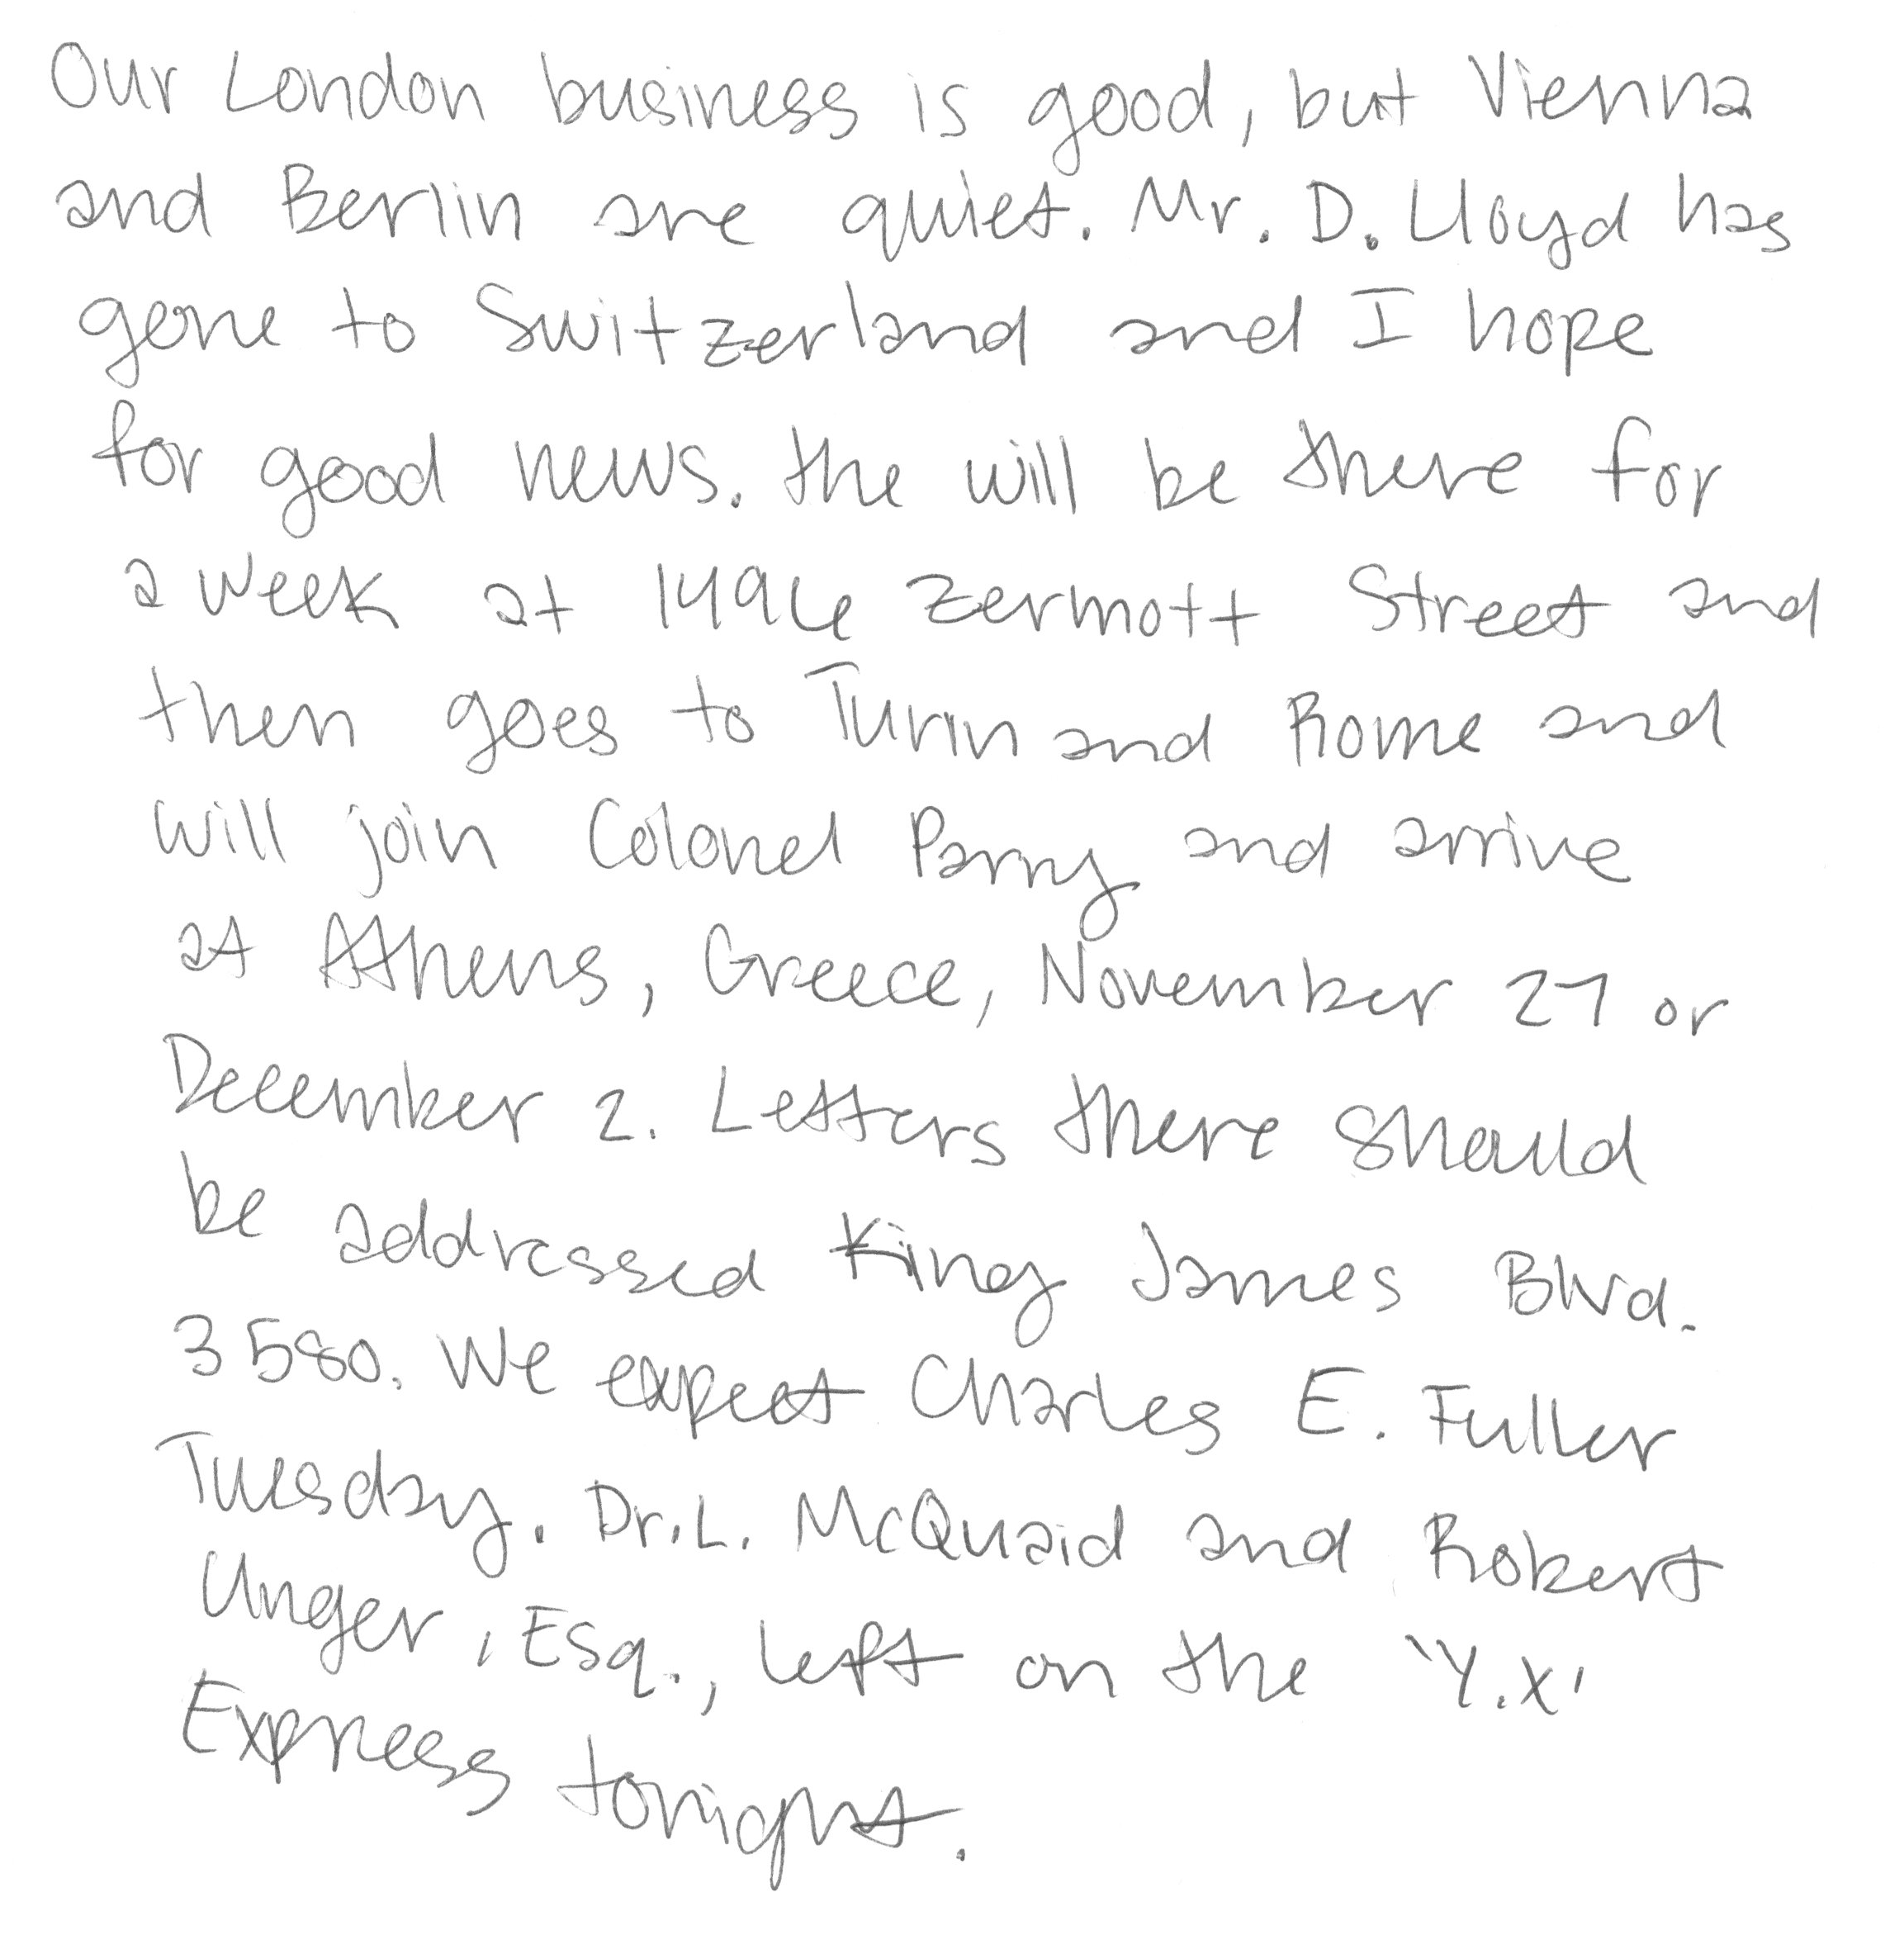 Our London business is good, but Vienna
and Berlin are quiet. Mr. D. Lloyd has
gone to Switzerland and I hope
for good news. the will be there for
a week at 1496 Zermott Street and
then goes to Turin and Rome and
will join Colonel Parry and arrive
at Athens, Greece, November 27 or
December 2. Letters there should
be addressed King James Blvd.
3580. We expect Charles E. Fuller
Tuesday. Dr. L. McQuaid and Robert
Unger, Esq., left on the 'Y.X'
Express tonight.